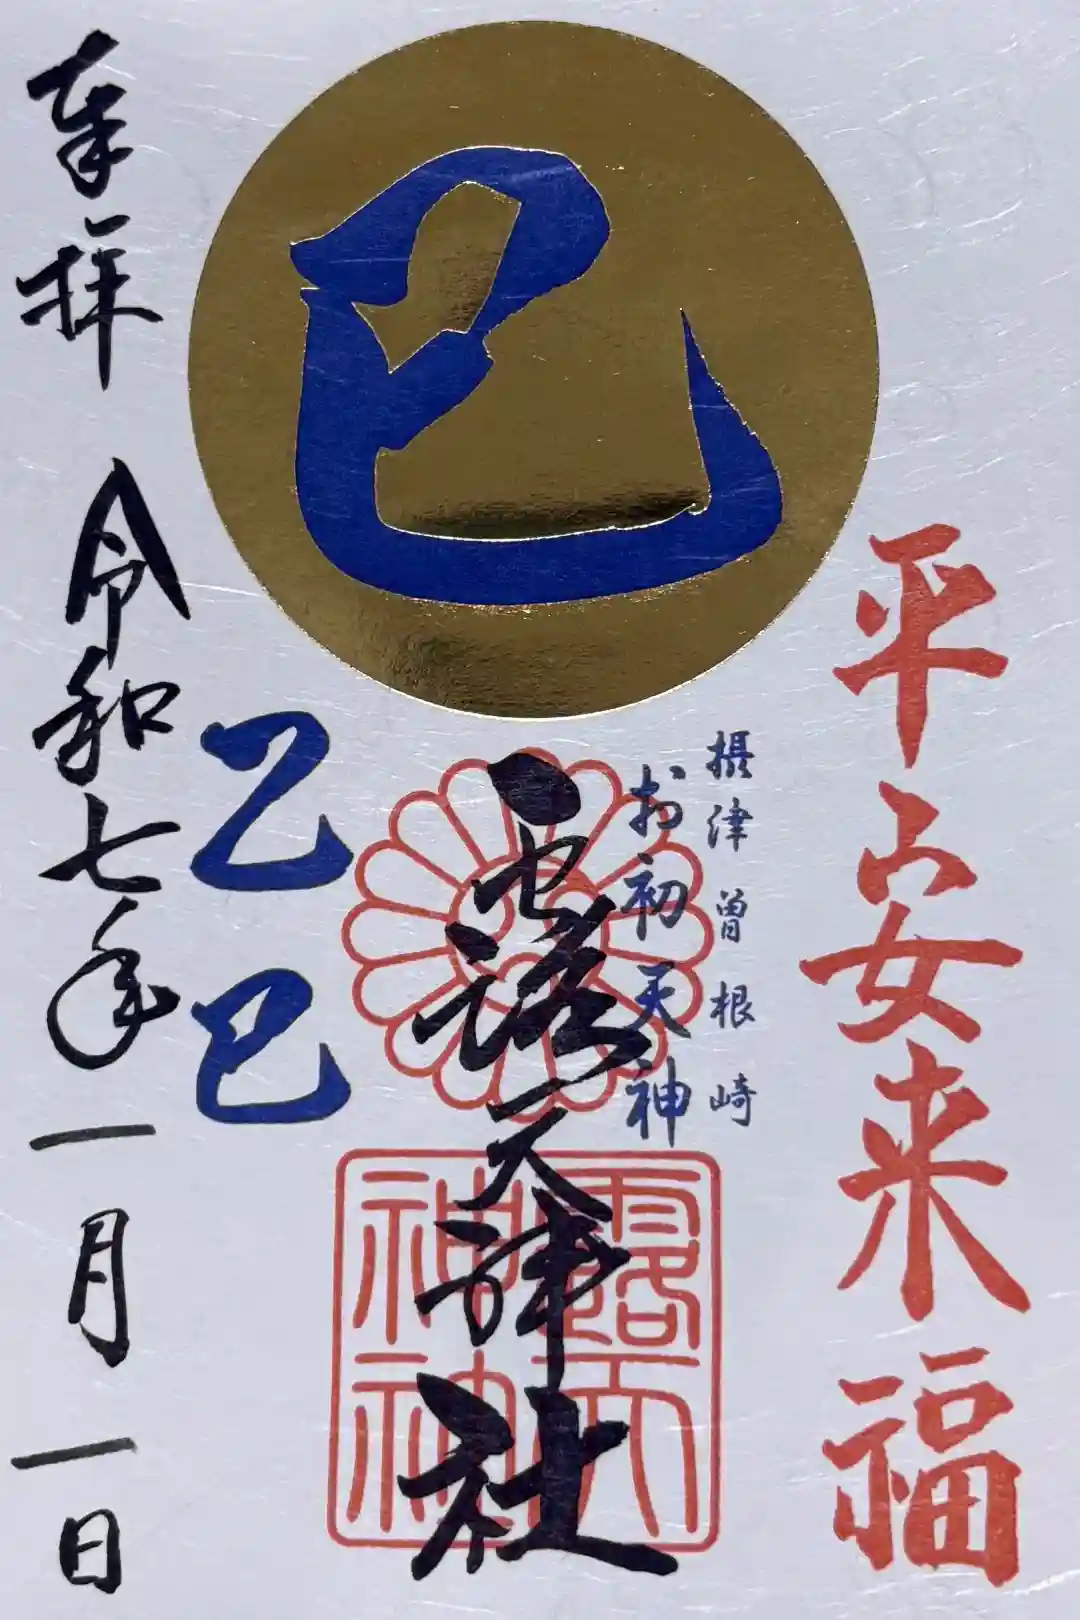 平安来福
巳
摂津曽根崎
お初天神
露天神社
露天
神社
乙巳
奉拝
令和七年一月一日